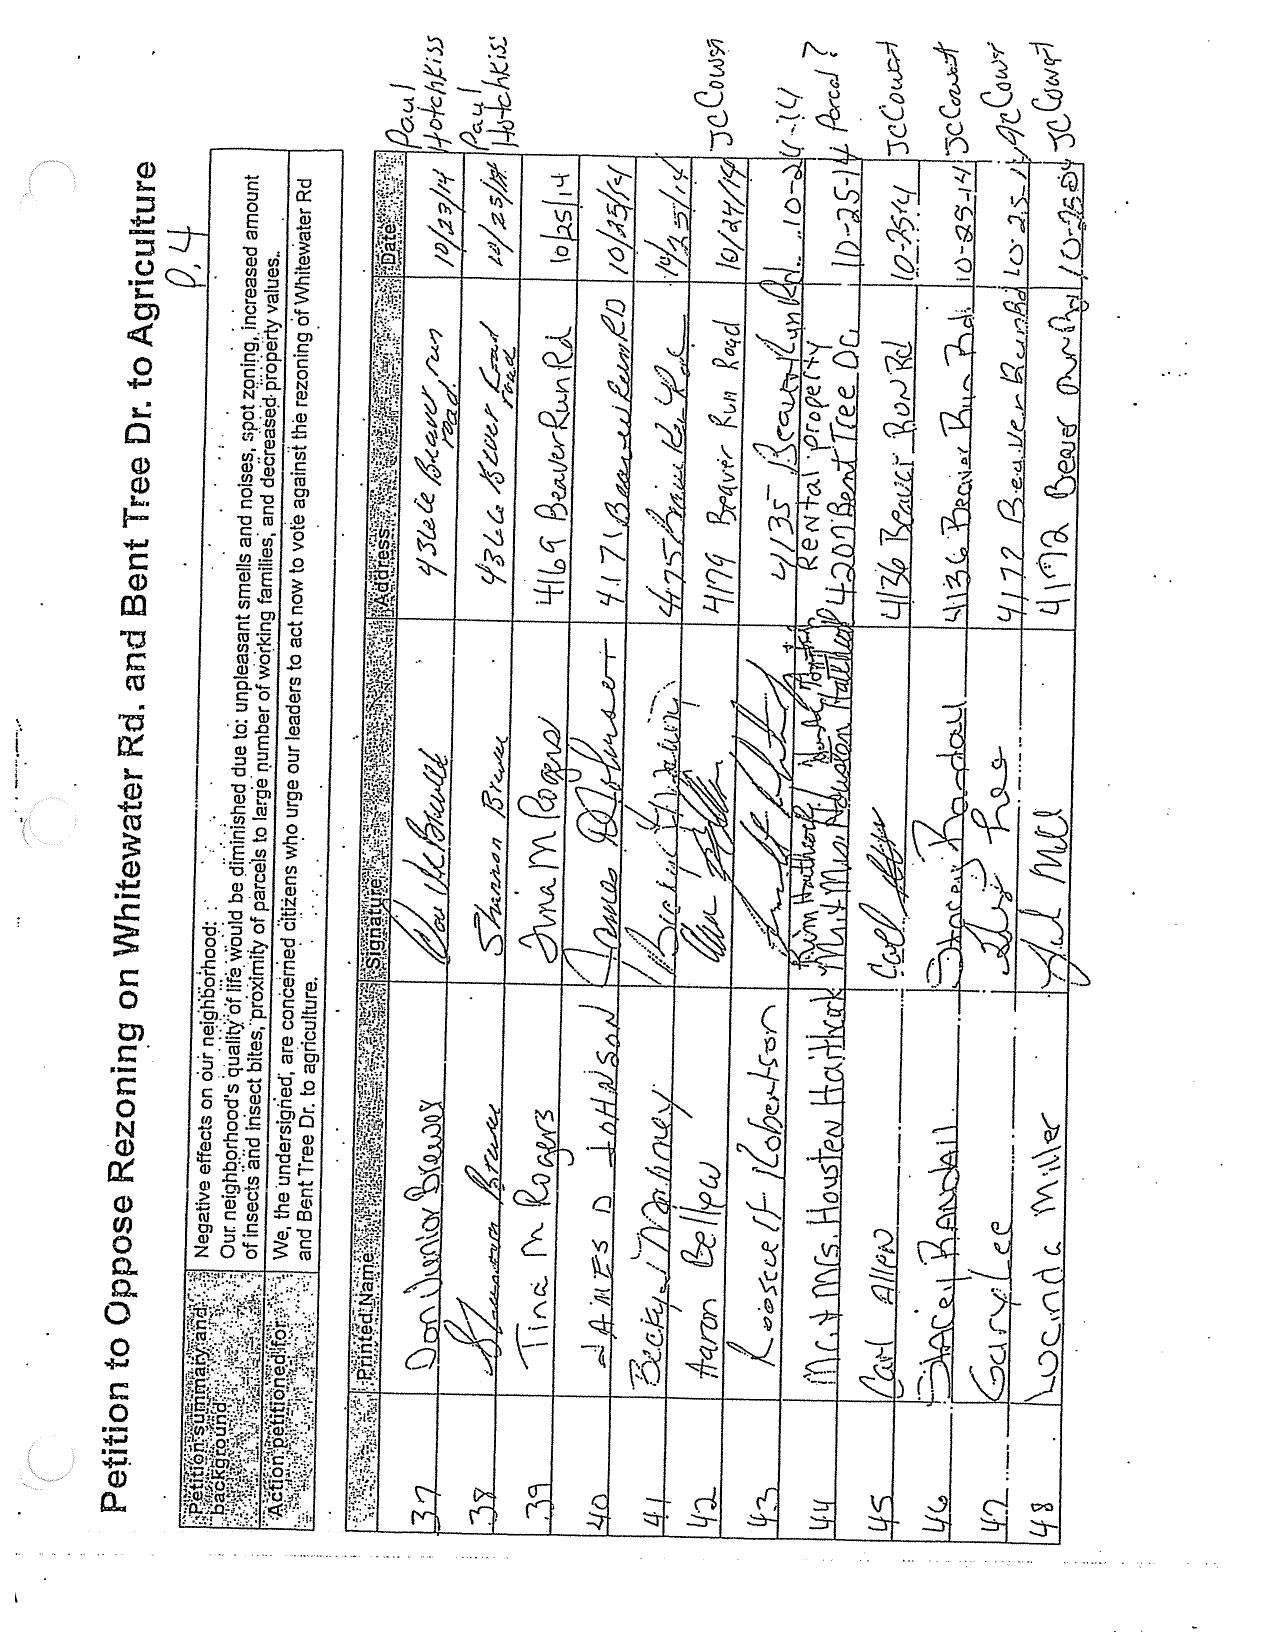 Petition to Oppose Rezoning on Whitewater Rd. and Bent Tree Dr. to Agriculture
p. 4
Petition summary and background
Negative effects on our neighborhood:
Our neighborhood's quality of life would be diminished due to: unpleasant smells and noises, spot zoning, increased amount
of insects and insect bites, proximity of parcels to large number of working families, and decreased property values.
Action petitioned for
We, the undersigned, are concerned citizens who urge our leaders to act now to vote against the rezoning of Whitewater Rd
and Bent Tree Dr. to agriculture.
Printed Name Signature Address Date
37 Don Junior Brewer 4366 Beaver run road 10/23/14 Paul Hotchkiss
38 Shannon Brewer Shannon Brewer 4366 road 10/25/14 Paul Hotchkiss
39 Tina M Rogers Tina M Rogers 4169 Beaver Run Rd 10/25/14
40 JAMES D JOHNSON James D Johnson 4171 Beaver Run RD 10/25/14
41 Becky J 10/25/14
42 Aaron Bellew 4179 Beaver Run Road 10/24/14 JC Cowart
43 Roosevelt Robertson 4135 Beaver Run Rd. 10-24-14
44 Mr. & Mrs. Housten Haithcock Kim Haithcock Mr & Mrs Houston Rental property 4207 Bent Tree Dr. 10-25-14 Parcel?
45 Carl Allen Carl 4136 Beaver RUN Rd 10-25-14 JC Cowart
46 STACEY RANDALL Stacey Randall 4136 Beaver Run Rd. 10-25-14 JC Cowart
47 Gary Lee Lee 4172 Beaver Run Rd 10-25-14 JC Cowart
48 Lucinda Miller 4172 Beaver Run Rd 10-25-14 JC Cowart